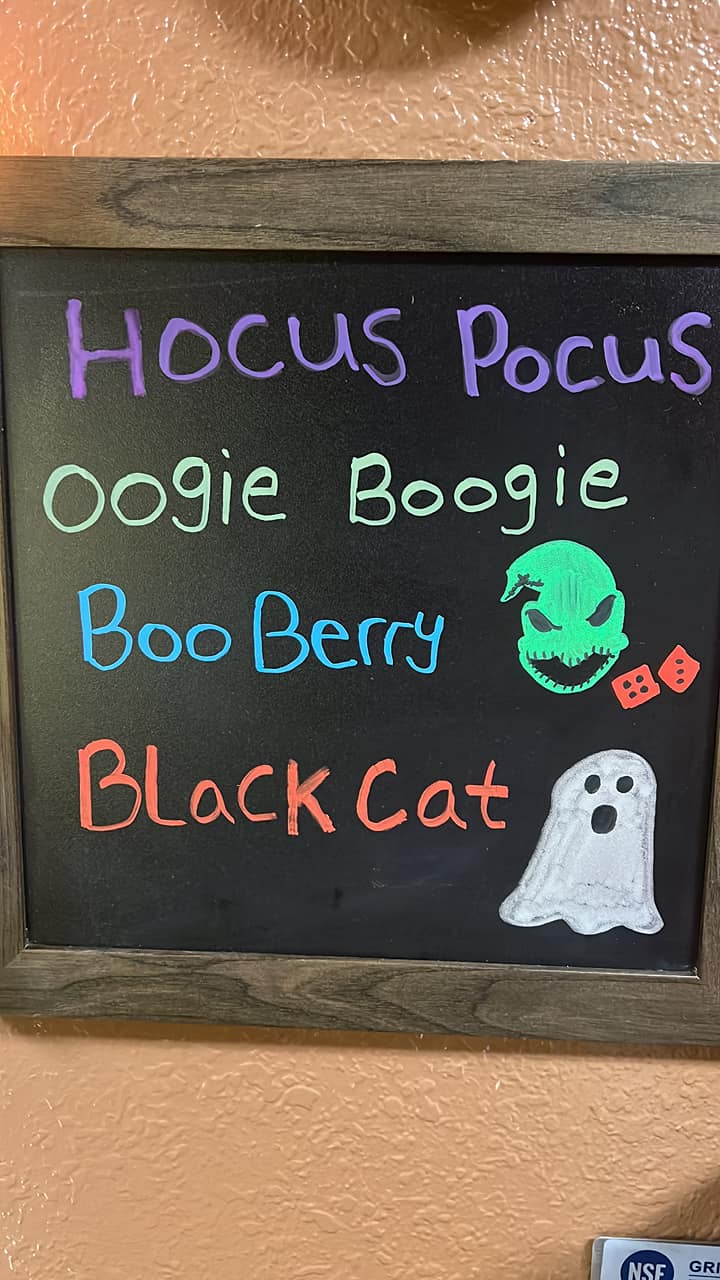 Hocus Pocus
Oogie Boogie
Boo Berry
BLack Cat
NSF